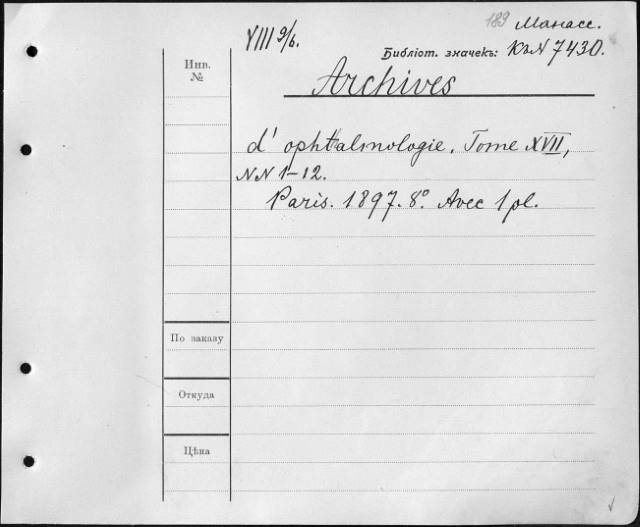 189 Манасс.
VIII 9/б.
Библіот. значекъ: КъN 7430.
Инв.
№
Archives
d' ophtalmologie. Tome XVII,
NN 1-12.
Paris. 1897. 8°. Avec 1 pl.
По заказу
Откуда
Цѣна